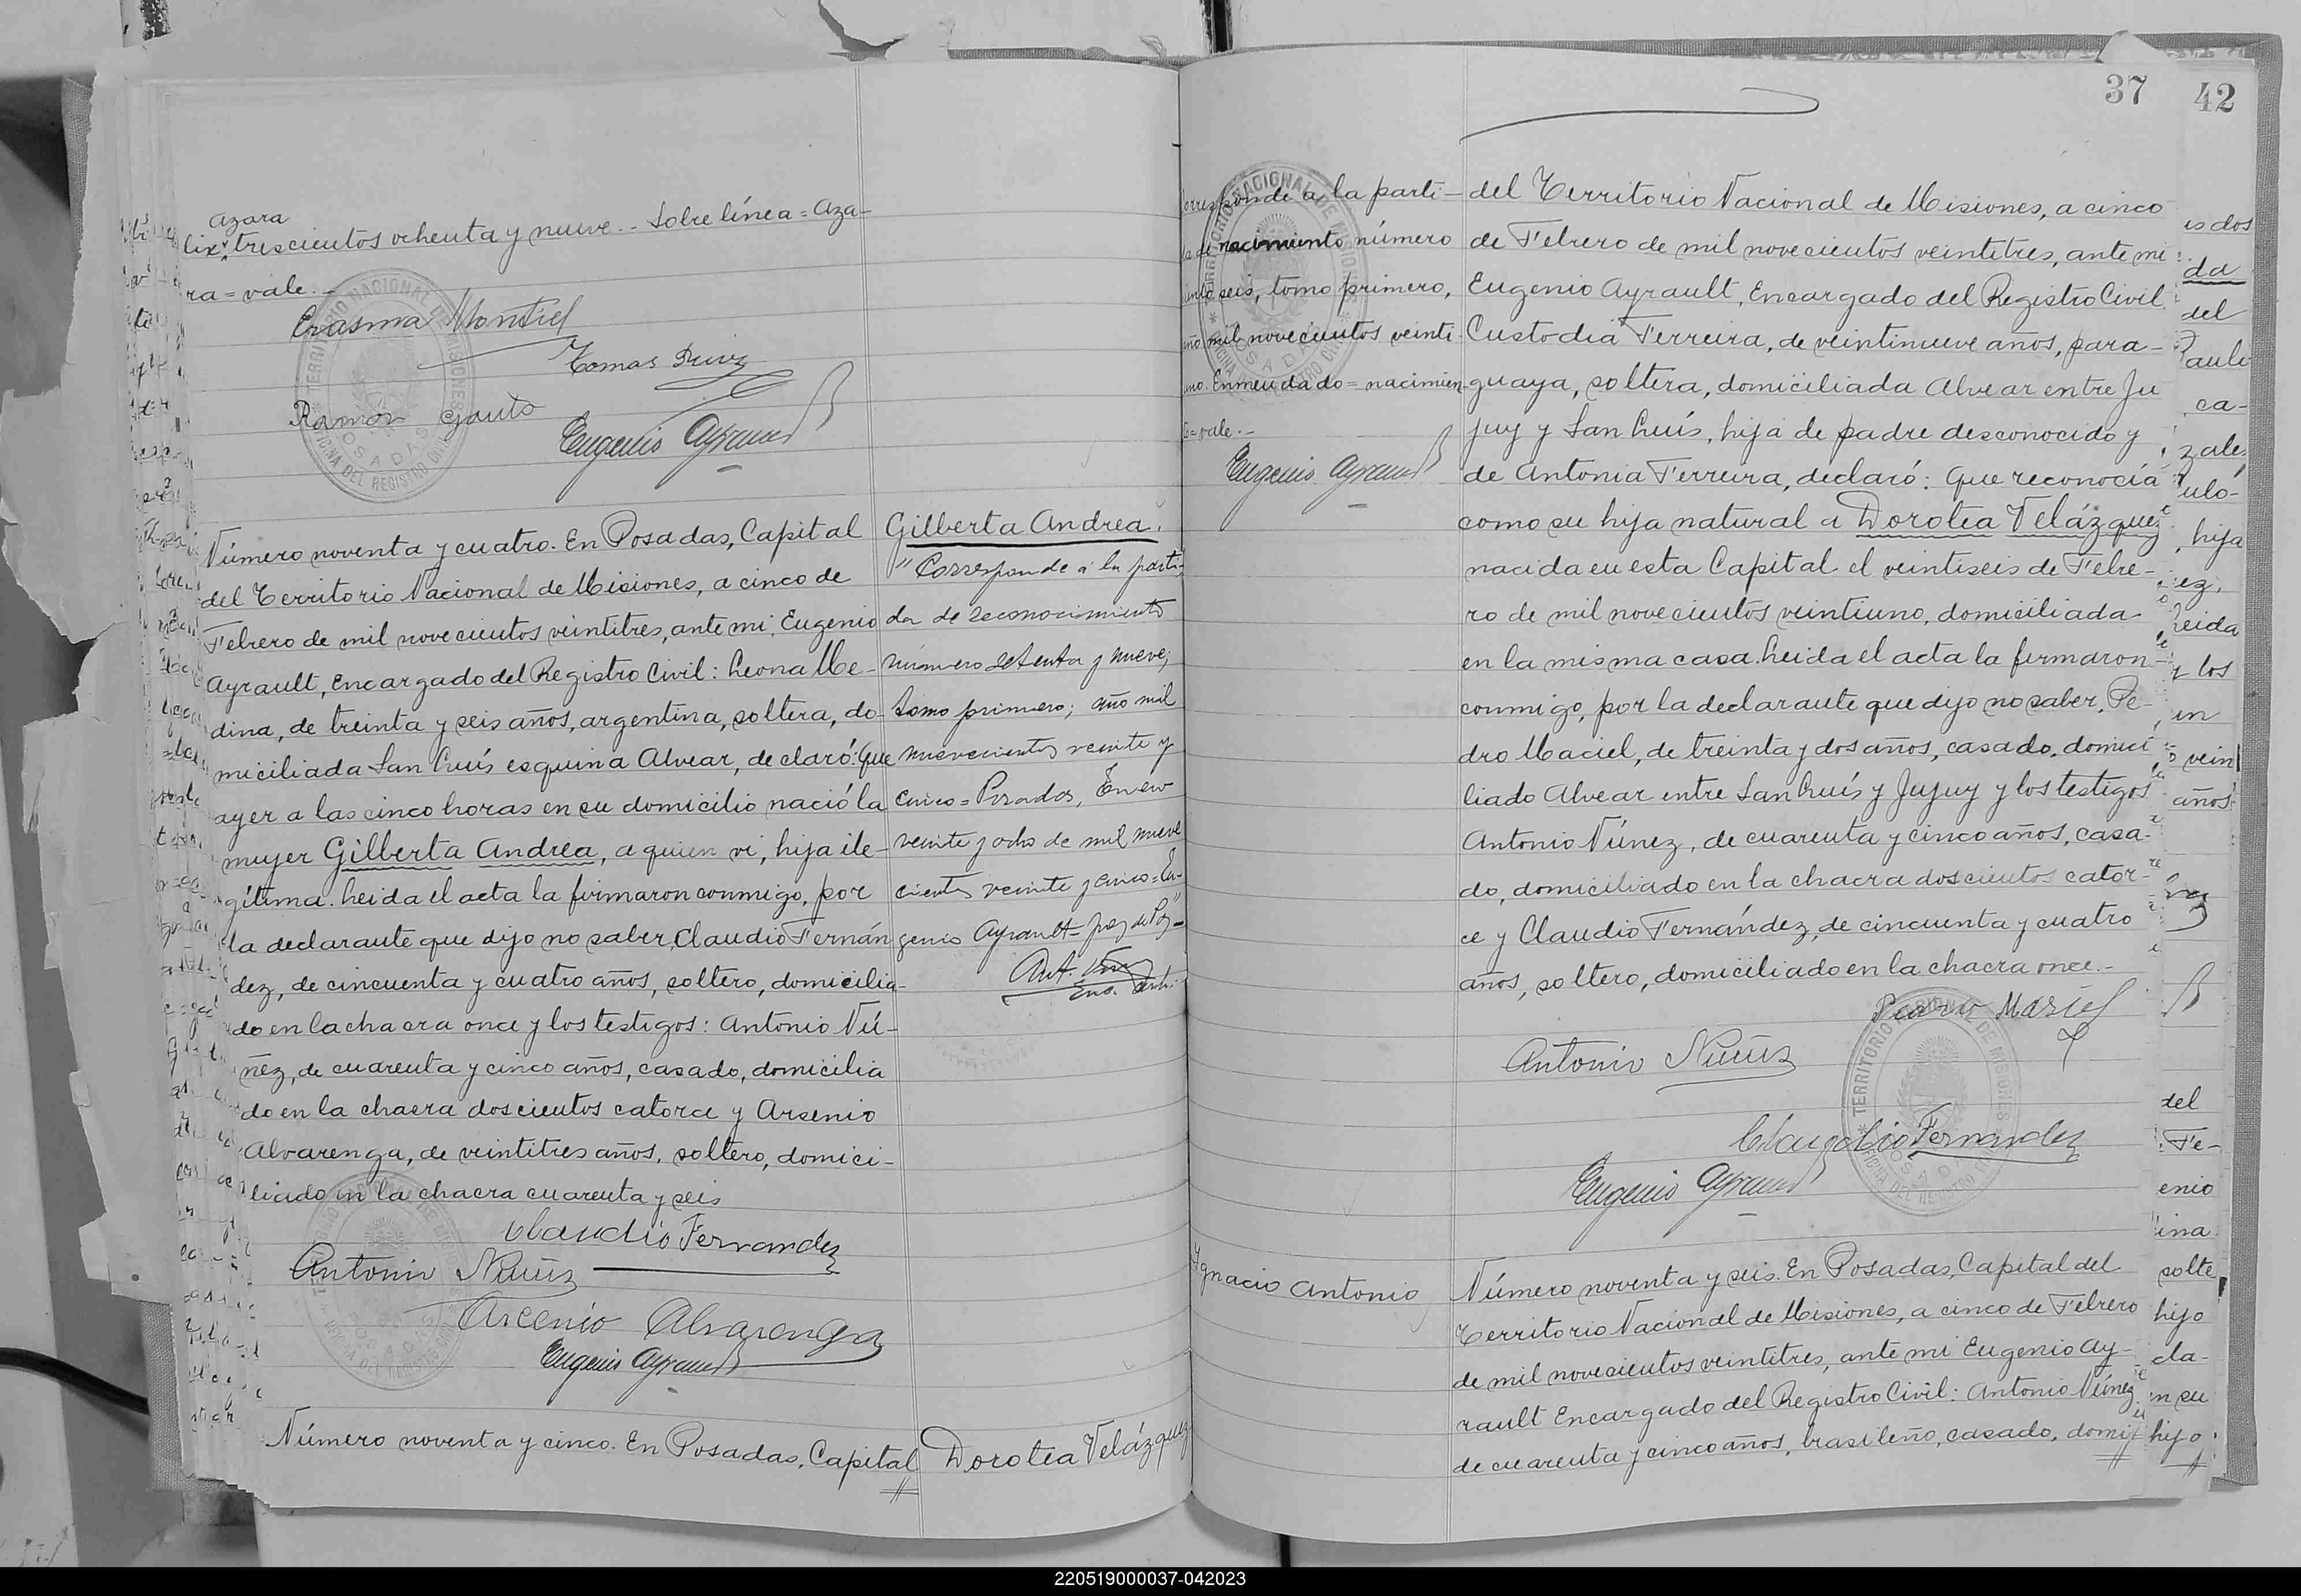 azara
lix, trescientos ochenta y nueve.- Sobre línea = Aza-
ra = vale.-
Erasma Montiel
Tomas Ruiz
Ramon Gauto
Eugenio Ayrault
Número noventa y cuatro. En Posadas, Capital
del Territorio Nacional de Misiones, a cinco de
Febrero de mil novecientos veintitres, ante mi, Eugenio
Ayrault, Encargado del Registro Civil: Leona Me-
dina, de treinta y seis años, argentina, soltera, do-
miciliada San Luís esquina Alvear, declaró: Que
ayer a las cinco horas en su domicilio nació la
mujer Gilberta Andrea, a quien vi, hija ile-
gítima. Leida el acta la firmaron conmigo, por
la declarante que dijo no saber, Claudio Fernán
dez, de cincuenta y cuatro años, soltero, domicilia-
do en la chacra once y los testigos: Antonio Nú-
ñez, de cuarenta y cinco años, casado, domicilia
do en la chacra doscientos catorce y Arsenio
Alvarenga, de veintitres años, soltero, domici-
liado en la chacra cuarenta y seis
Claudio Fernandez
Antonio Nuñez
Arcenio Alvarenga
Eugenio Ayrault
Número noventa y cinco. En Posadas, Capital
Gilberta Andrea.
"Corresponde a la parti-
da de reconocimiento
número setenta y nueve;
tomo primero; año mil
nuevecientos veinte y
cinco = Posadas, Enero
veinte y ocho de mil nueve
cientos veinte y cinco = Eu-
genio Ayrault = Juez de Paz =
Dorotea Velázquez
37 42
Corresponde a la parti-
da de nacimiento número
seis, tomo primero,
año mil novecientos veinti-
uno. Enmendado = nacimien-
to = vale.-
Eugenio Ayrault
del Territorio Nacional de Misiones, a cinco
de Febrero de mil novecientos veintitres, ante mi
Eugenio Ayrault, Encargado del Registro Civil
Custodia Ferreira, de veintinueve años, para-
guaya, soltera, domiciliada Alvear entre Ju
juy y San Luís, hija de padre desconocido y
de Antonia Ferreira, declaró: Que reconocía
como su hija natural a Dorotea Velázquez
nacida en esta Capital el veintiseis de Febre-
ro de mil novecientos veintiuno, domiciliada
en la misma casa. Leida el acta la firmaron
conmigo, por la declarante que dijo no saber, Pe-
dro Maciel, de treinta y dos años, casado, domici
liado Alvear entre San Luís y Jujuy y los testigos
Antonio Núnez, de cuarenta y cinco años, casa-
do, domiciliado en la chacra doscientos cator-
ce y Claudio Fernández, de cincuenta y cuatro
años, soltero, domiciliado en la chacra once.-
Pedro Masiel
Antonio Nuñez
Claudio Fernandez
Eugenio Ayrault
Ignacio Antonio
Número noventa y seis. En Posadas, Capital del
Territorio Nacional de Misiones, a cinco de Febrero
de mil novecientos veintitres, ante mi Eugenio Ay-
rault Encargado del Registro Civil: Antonio Núnez
de cuarenta y cinco años, brasileño, casado, domi
220519000037-042023